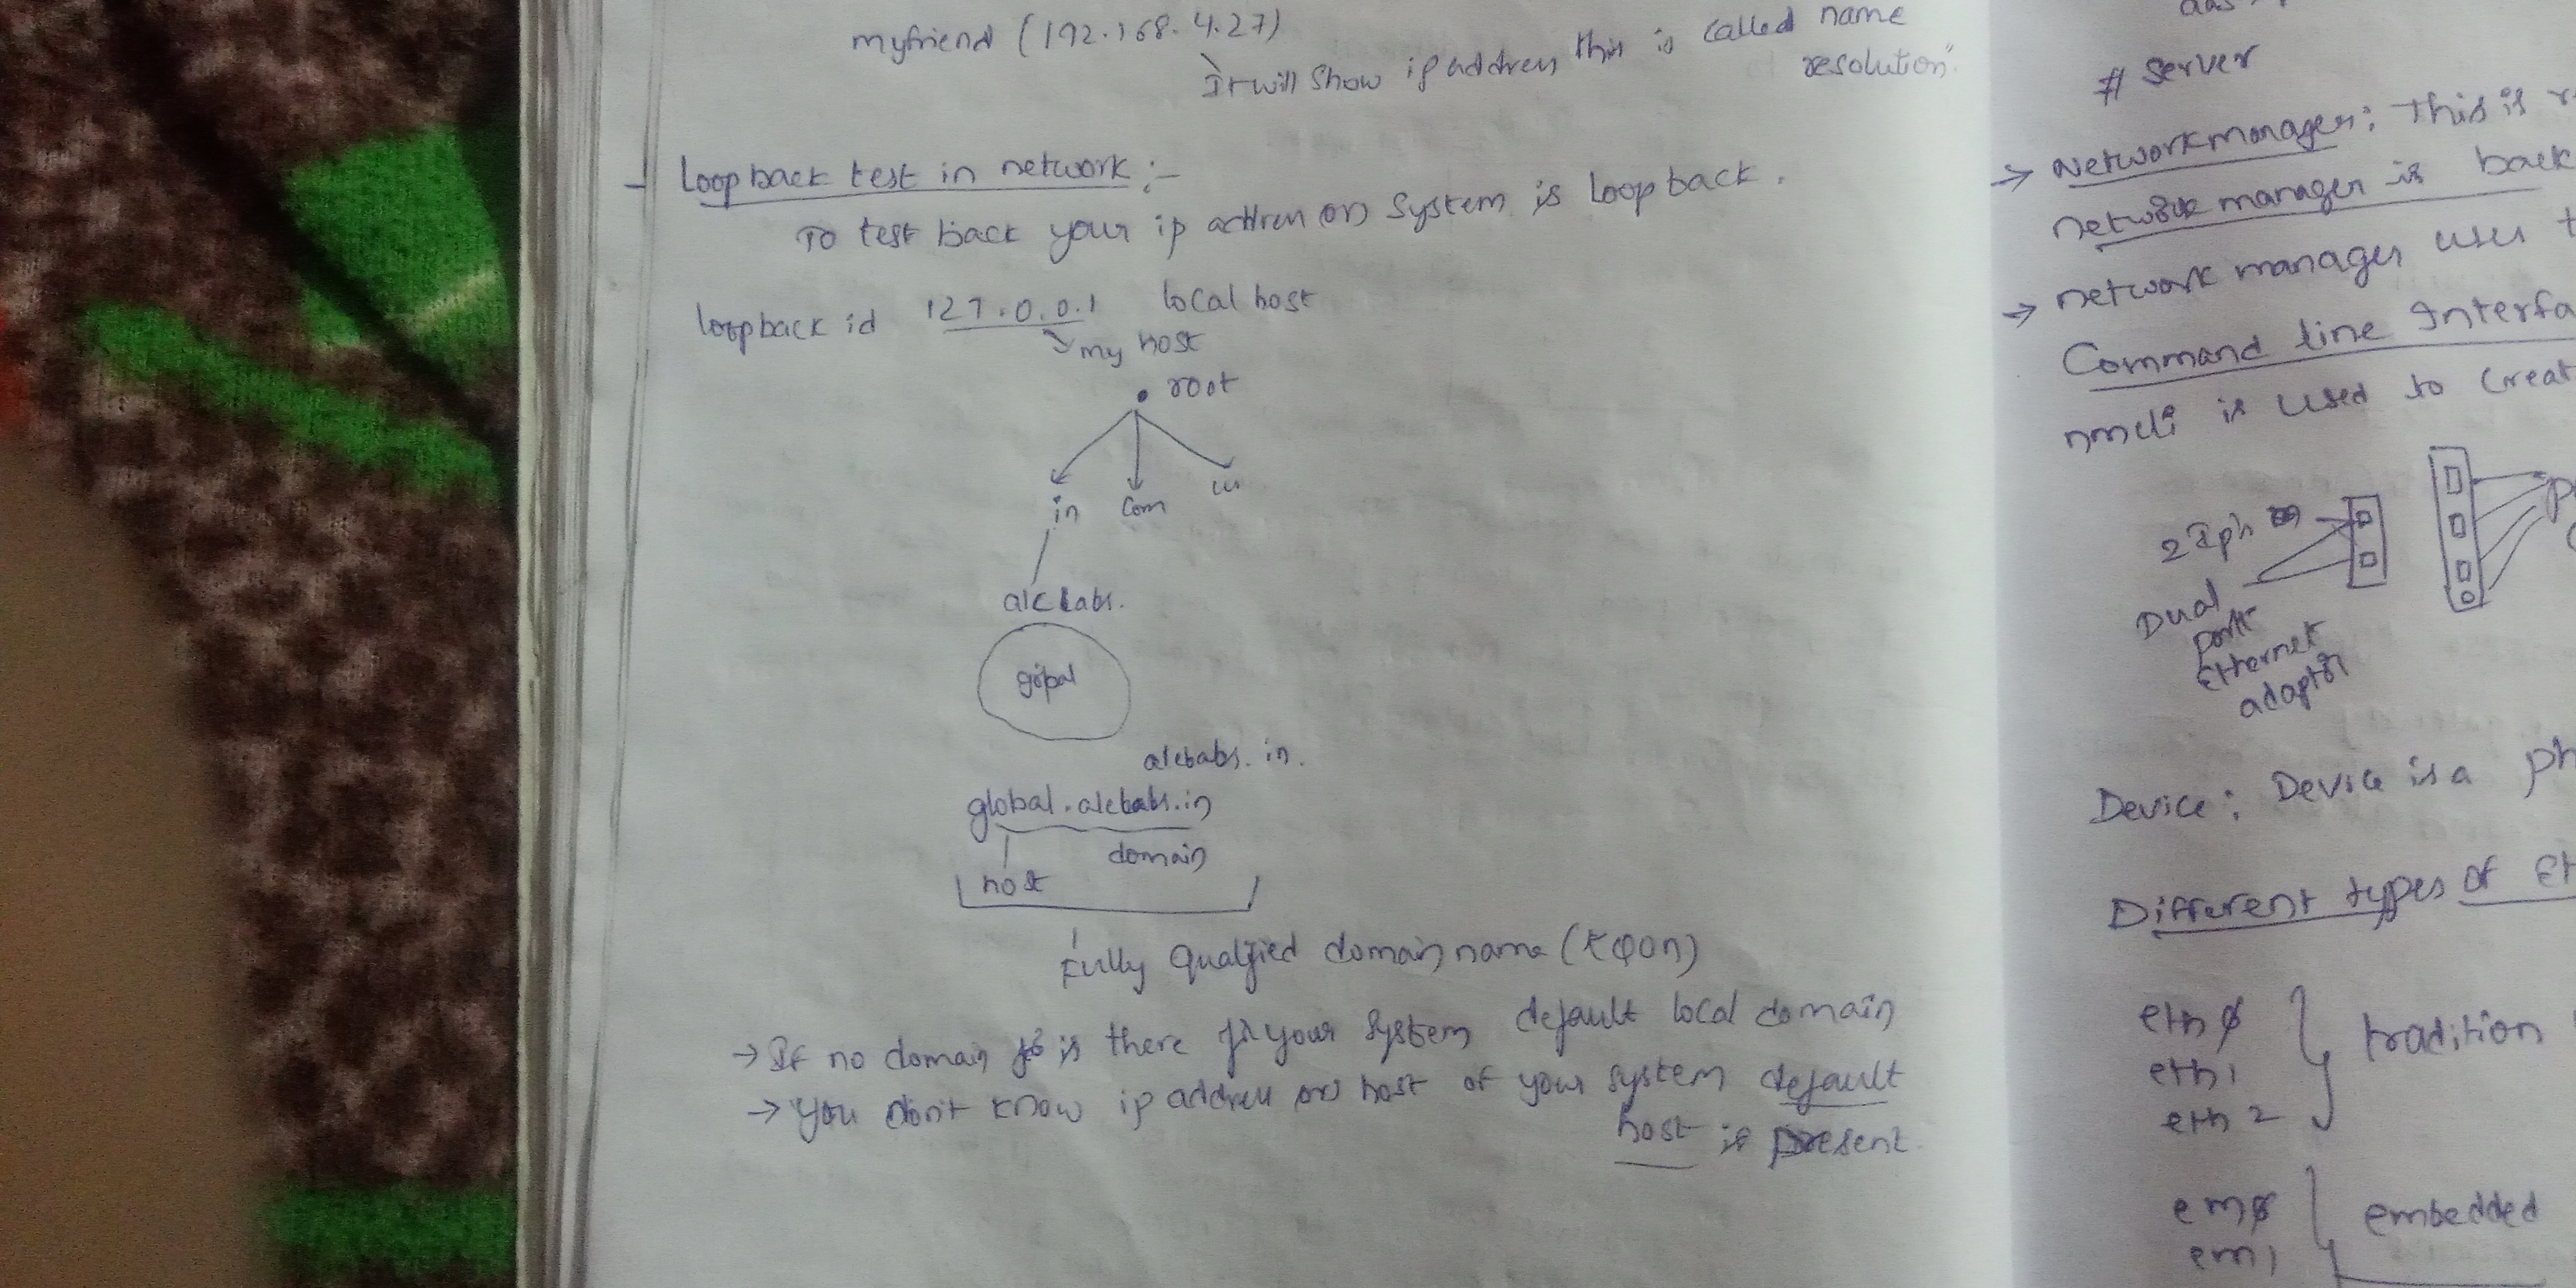 myfriend (192.168.4.27)
It will show ip address this is called name
resolution".
- Loopback test in network :-
To test back your ip address (or) system is loopback.
loopback id 127.0.0.1 local host
my host
root
in com
alclabs.
alclabs.in.
global.alclabs.in
domain
host
Fully Qualified domain name (FQDN)
→ If no domain is there for your system default local domain
→ You don't know ip address or host of your system default
host is present.
# Server
→ Networkmanager: This is
network manager is back
→ network manager uses
Command line Interfa
nmcli is used to creat
Dual
port
Ethernet
adaptor
Device: Device is a ph
Different types of Et
eth0
eth1
eth2
tradition
em0
em1
embedded